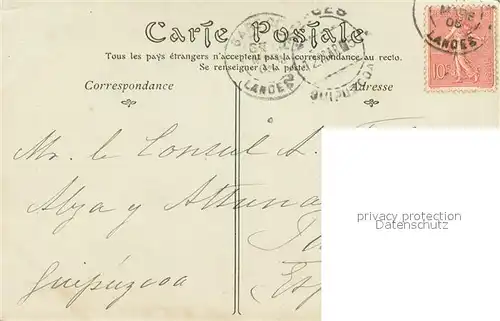 Carte Postale
Tous les pays étrangers n'acceptent pas la correspondance au recto.
Se renseigner à la poste.
Correspondance
Adresse
LANDES
GUIPUZCOA
05
LANDES
10
Mr. le Consul A.
Alza y Altuna
Guipúzcoa
privacy protection
Datenschutz